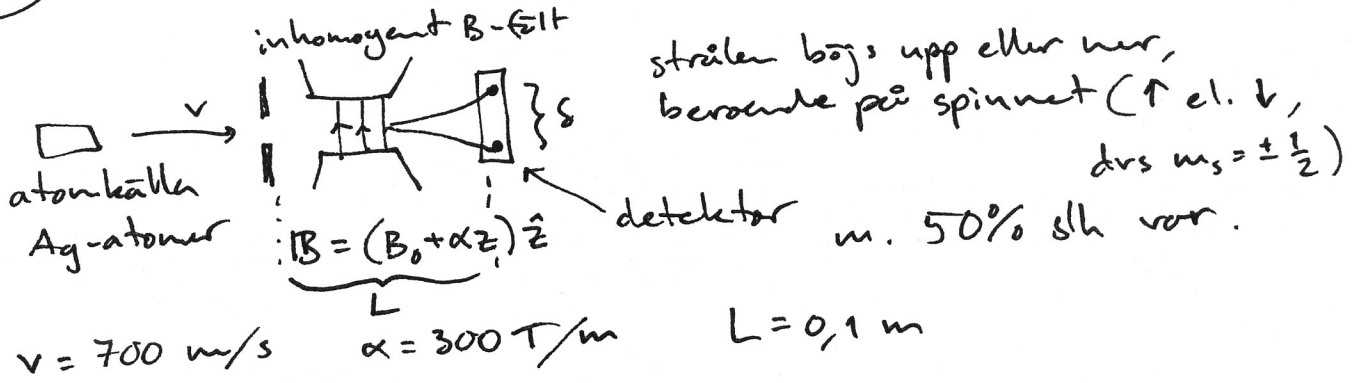 inhomogent B-fält
strålen böjs upp eller ner,
beroende på spinnet (↑ el. ↓,
dvs m_s = ± 1/2)
m. 50% slh var.
v
}δ
atomkälla
Ag-atomer
detektor
𝔹 = (B₀+αz) ẑ
L
v = 700 m/s α = 300 T/m L = 0,1 m